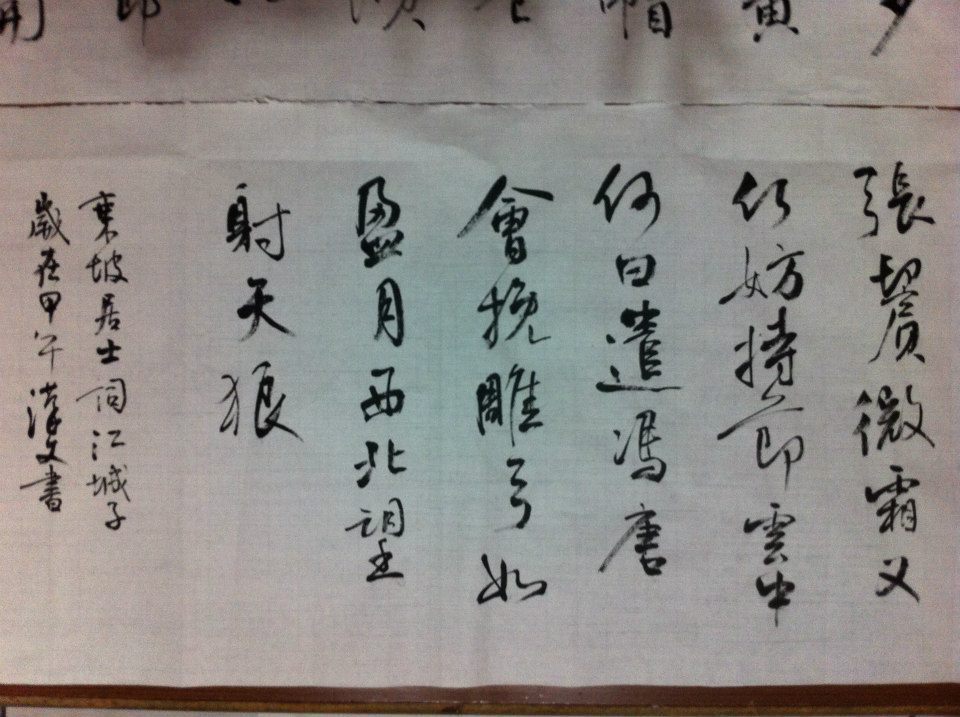 張鬢微霜又
何妨持節雲中
何日遣馮唐
會挽雕弓如
盈月西北望
射天狼
東坡居士詞江城子
歲在甲午漢文書